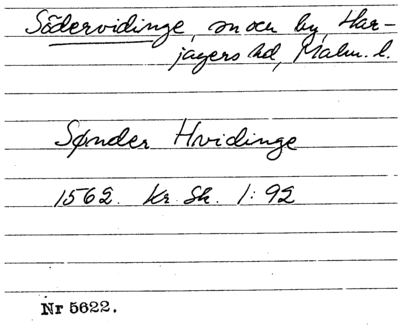 Södervidinge, sn och by, Har-
jagers hd, Malm. l.
Sønder Hvidinge
1562. Kr. Sk. 1: 92
Nr 5622.